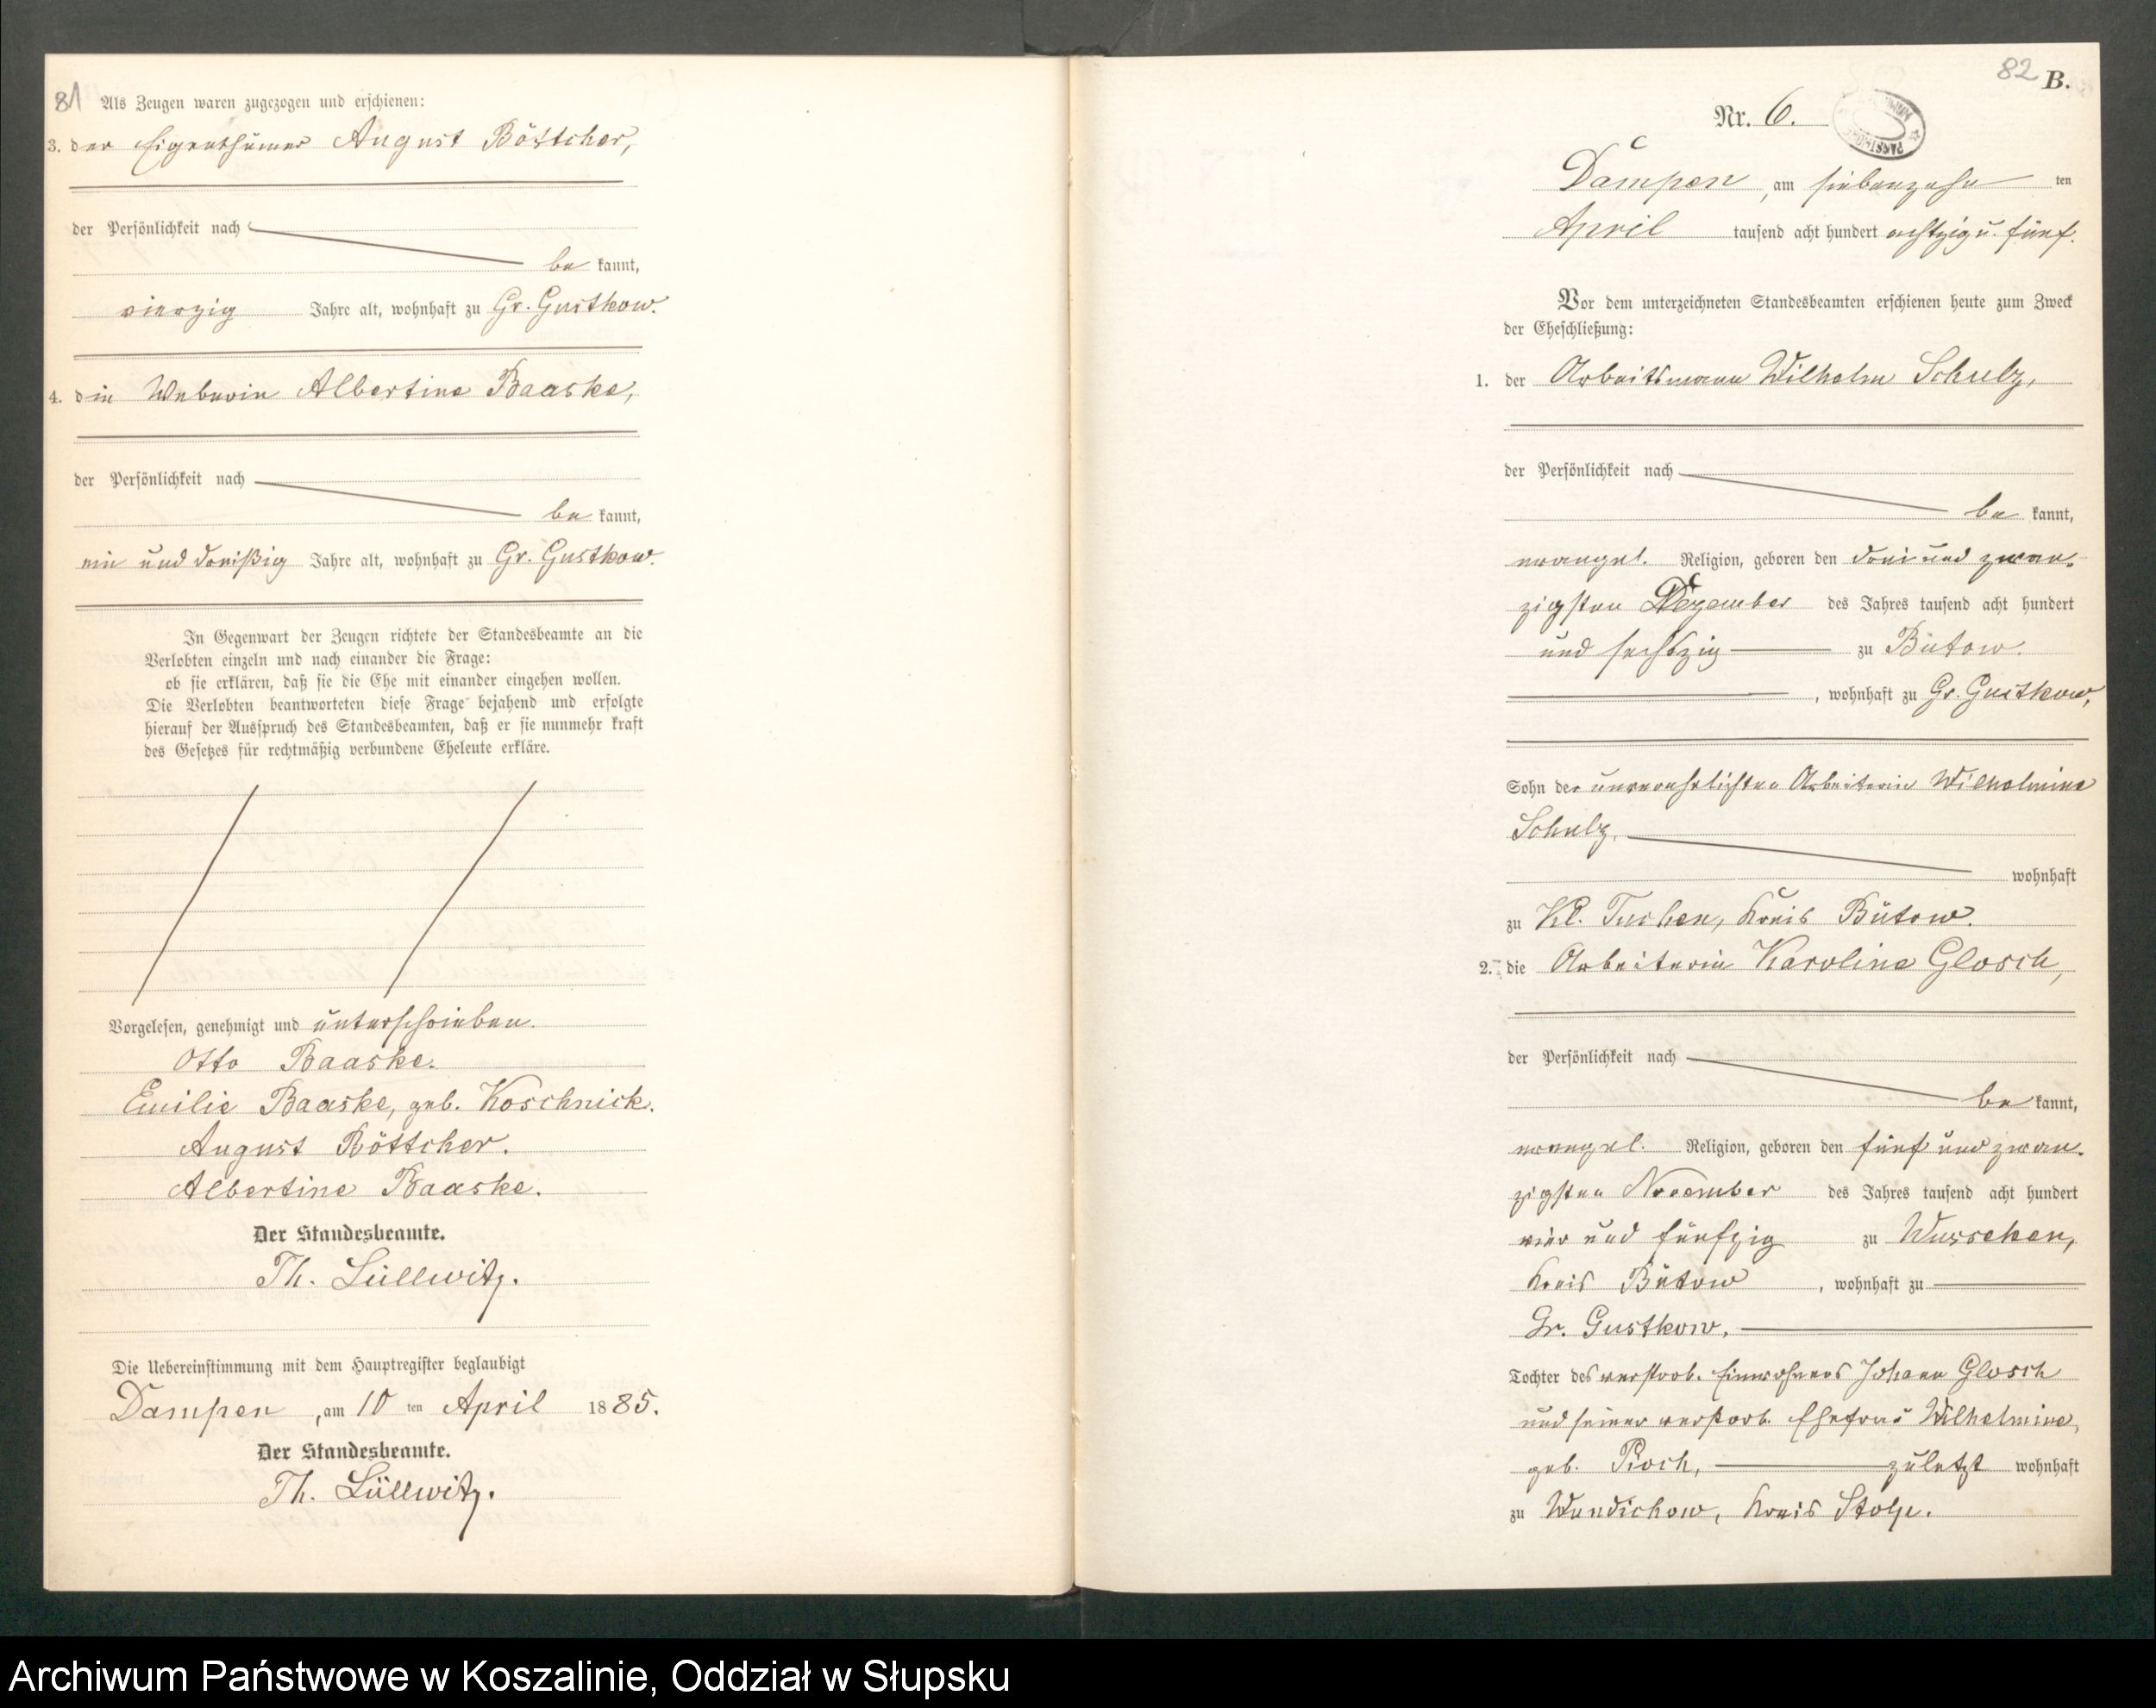 81 Als Zeugen waren zugezogen und erschienen:
3. der Eigenthümer August Böttcher,
der Persönlichkeit nach
be kannt,
vierzig Jahre alt, wohnhaft zu Gr. Gustkow.
4. die Weberin Albertine Baaske,
der Persönlichkeit nach
be kannt,
ein und dreißig Jahre alt, wohnhaft zu Gr. Gustkow.
In Gegenwart der Zeugen richtete der Standesbeamte an die
Verlobten einzeln und nach einander die Frage:
ob sie erklären, daß sie die Ehe mit einander eingehen wollen.
Die Verlobten beantworteten diese Frage bejahend und erfolgte
hierauf der Ausspruch des Standesbeamten, daß er sie nunmehr kraft
des Gesetzes für rechtmäßig verbundene Eheleute erkläre.
Vorgelesen, genehmigt und unterschrieben.
Otto Baaske.
Emilie Baaske, geb. Koschnick.
August Böttcher.
Albertine Baaske.
Der Standesbeamte.
Th. Lüllwitz.
Die Uebereinstimmung mit dem Hauptregister beglaubigt
Dampen, am 10 ten April 1885.
Der Standesbeamte.
Th. Lüllwitz.
82 B.
Nr. 6.
Dampen, am siebenzehn ten
April tausend acht hundert achtzig u. fünf.
Vor dem unterzeichneten Standesbeamten erschienen heute zum Zweck
der Eheschließung:
1. der Arbeitsmann Wilhelm Schulz,
der Persönlichkeit nach
be kannt,
evangel. Religion, geboren den drei und zwan-
zigsten Dezember des Jahres tausend acht hundert
und sechszig zu Bütow.
, wohnhaft zu Gr. Gustkow,
Sohn der unverehelichten Arbeiterin Wilhelmine
Schulz,
wohnhaft
zu Kl. Tuchen, Kreis Bütow.
2. die Arbeiterin Karoline Glosch,
der Persönlichkeit nach
be kannt,
evangel. Religion, geboren den fünf und zwan-
zigsten November des Jahres tausend acht hundert
vier und fünfzig zu Wusseken,
Kreis Bütow, wohnhaft zu
Gr. Gustkow.
Tochter des verstorb. Einwohners Johann Glosch
und seiner verstorb. Ehefrau Wilhelmine,
geb. Pioch, zuletzt wohnhaft
zu Wundichow, Kreis Stolp.
Archiwum Państwowe w Koszalinie, Oddział w Słupsku